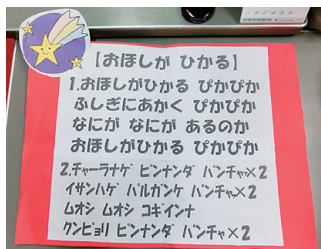 【おほしが ひかる】
1.おほしがひかる ぴかぴか
ふしぎにあかく ぴかぴか
なにが なにが あるのか
おほしがひかる ぴかぴか
2.チャーラナゲ ピンナンダ パンチャ×2
イサンハゲ パルガンケ パンチャ×2
ムオシ ムオシ コギインナ
クンビョリ ピンナンダ パンチャ×2